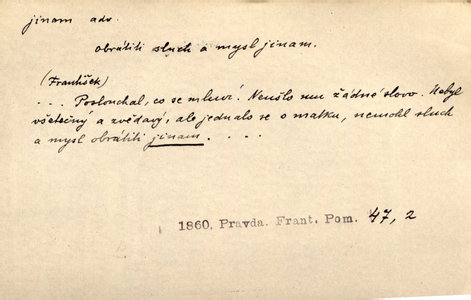 jinam adv.
obrátiti sluch a mysl jinam.
(František)
... Poslouchal, co se mluví. Neušlo mu žádné slovo. Nebyl
všetečný a zvědavý, ale jednalo se o matku, nemohl sluch
a mysl obrátiti jinam. . . .
1860, Pravda. Frant. Pom. 47, 2